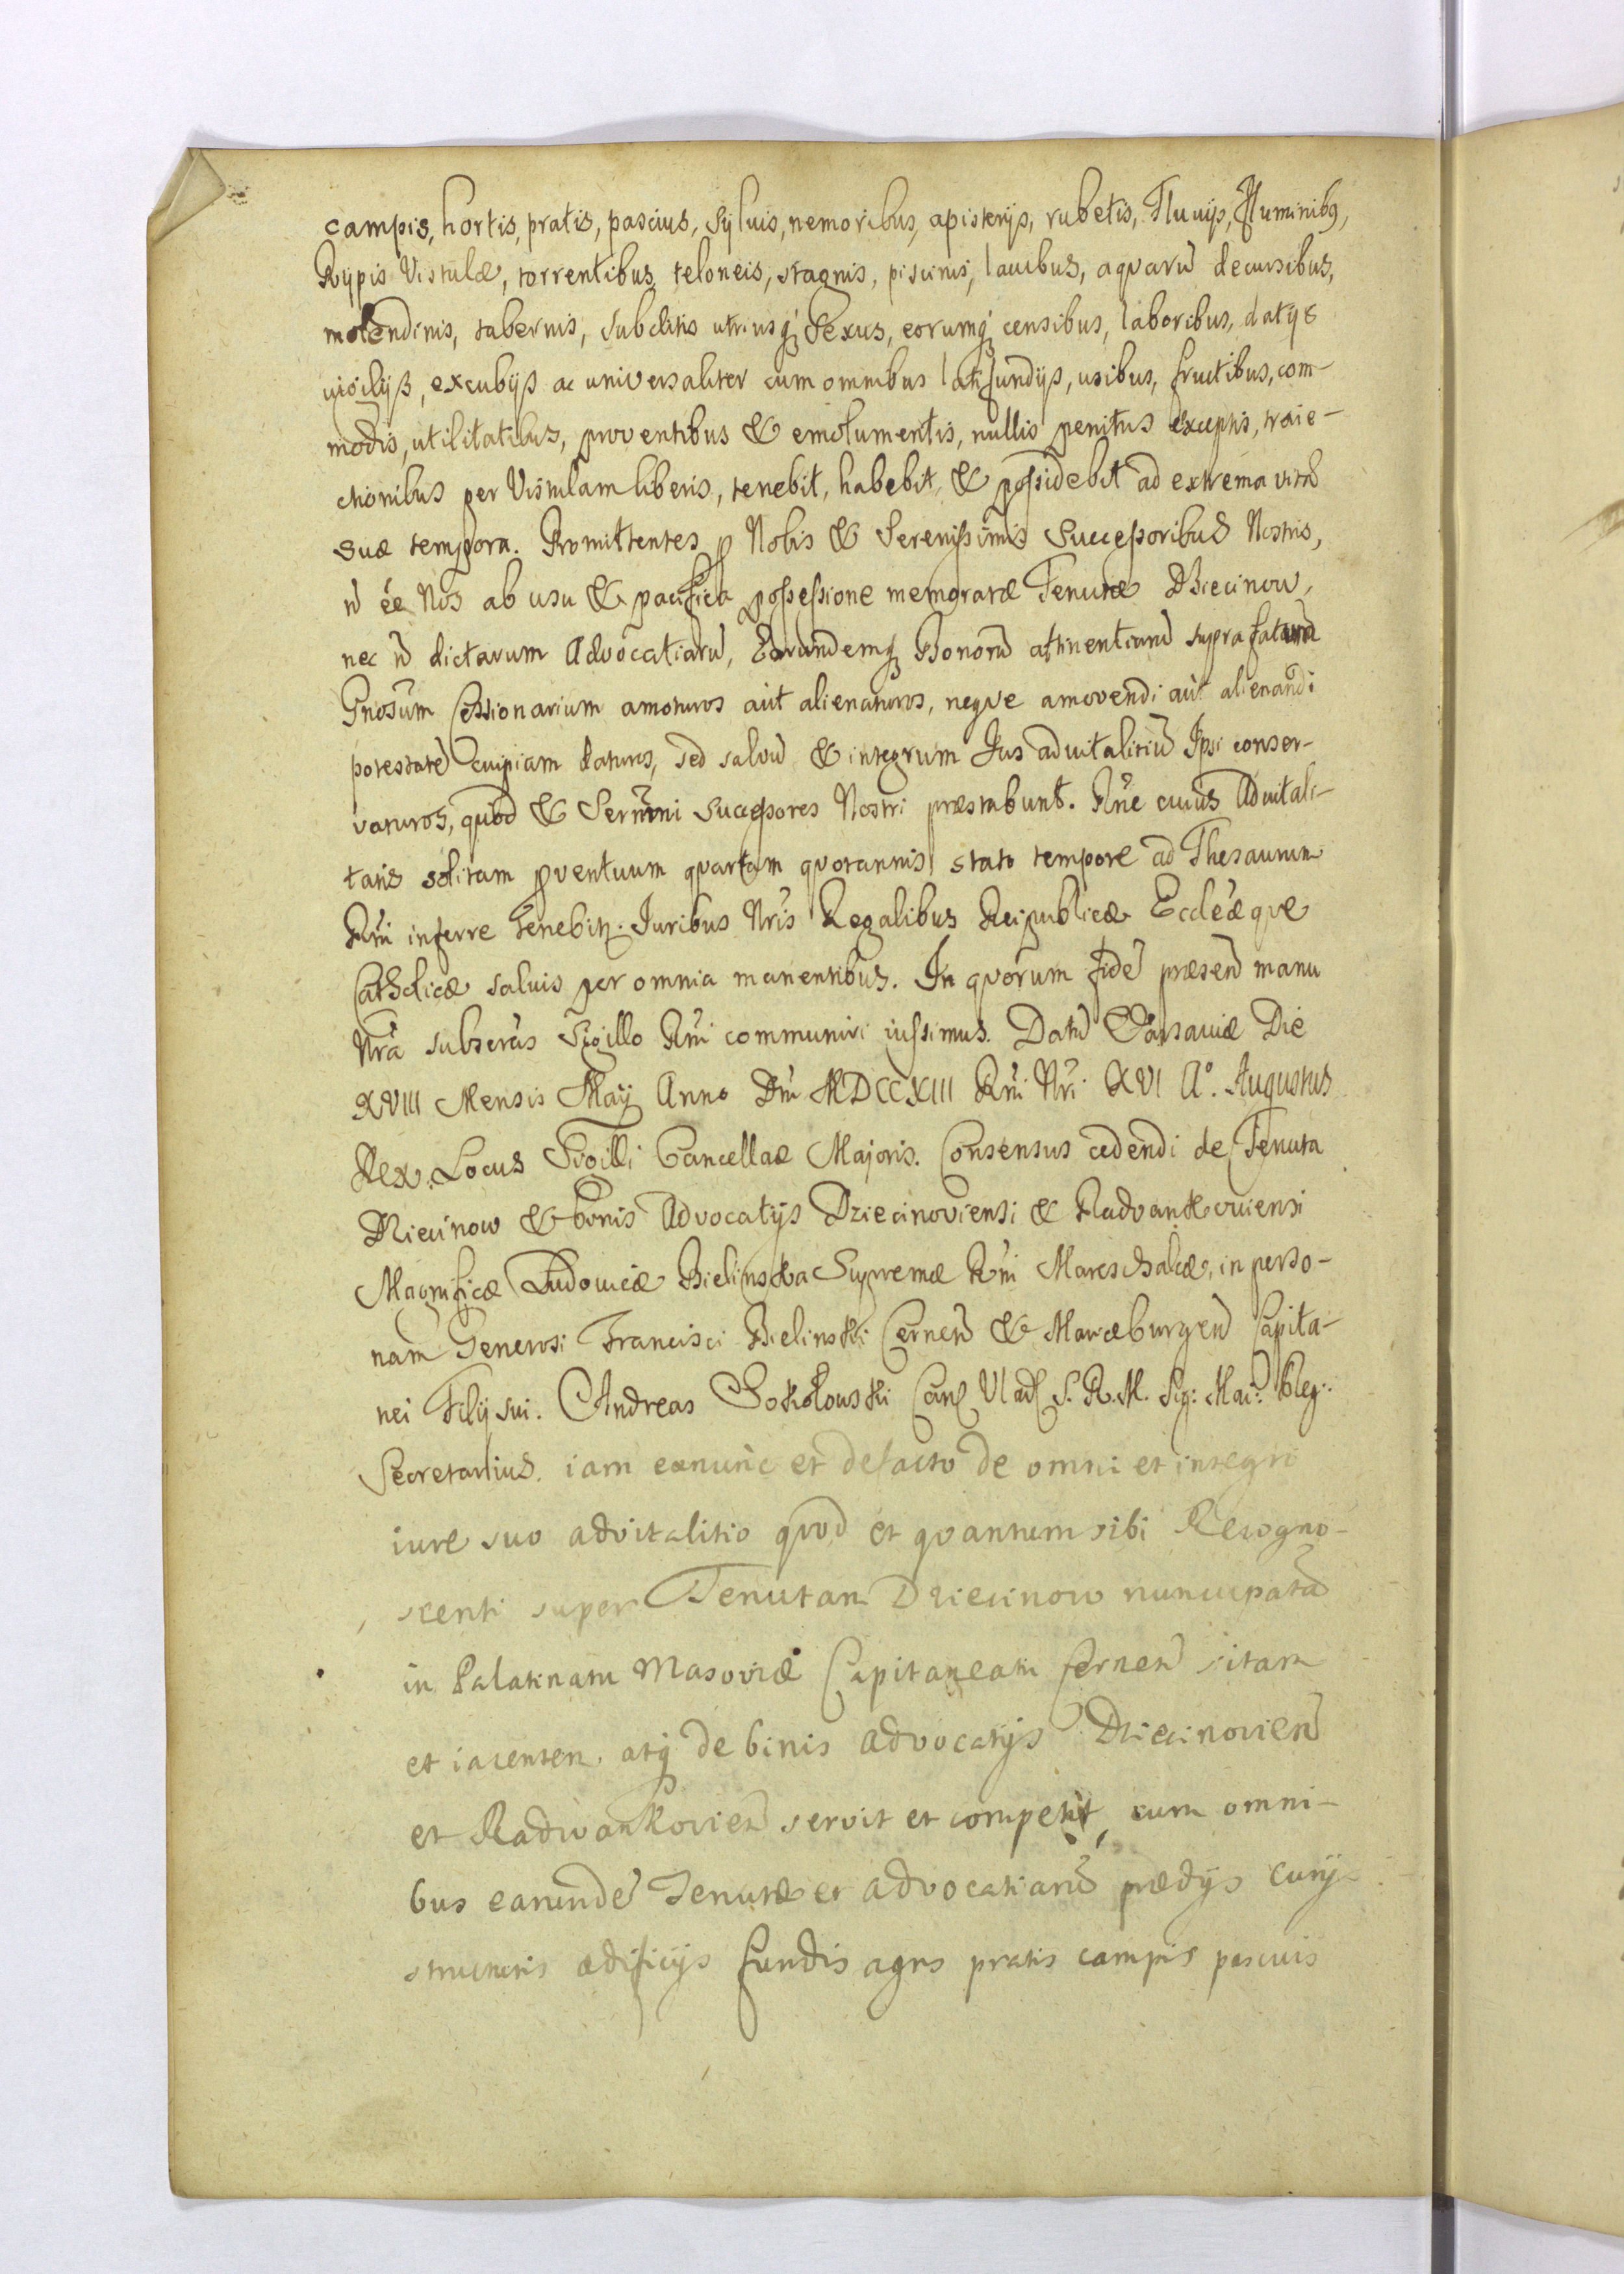 campis, hortis, pratis, pascius, Sÿluis, nemoribus, apisterÿs, rubetis, Fluuÿs, Fluminibꝰ,
Rÿpis Vistulæ, torrentibus, teloneis, stagnis, piscinis, lacubus, aqvarū decursibus,
molendinis, tabernis, subditis utriusqꝫ Sexus, eorumqꝫ censibus, laboribus, datÿs
vigilÿs, excubÿs ac universaliter cum omnibus latifundÿs, usibus, fructibus, com-
modis, utilitatibus, proventibus & emolumentis, nullis penitus exceptis, traie-
ctionibus per Vistulam liberis, tenebit, habebit, & possidebit ad extrema vitæ
suæ tempora. Promittentes ꝓ Nobis & Serenissimis Successoribus Nostris,
n̄ ée Nos ab usu & pacifica possessione memoratæ Tenutæ Dziecinow,
nec n̄ dictarum Advocatiarū, Earundemqꝫ Bonorū attinentiarū supra fatum
Gnosum Cessionarium amoturos aut alienaturos, neqve amovendi aut alienandi
potestatē cuipiam daturos, sed salvū & integrum Jus advitalitiū Ipsi conser-
vaturos, qvod & Sernmi Successores Nostri præstabunt. Rne cuius Advitali-
tatis solitam ꝓventuum qvartam qvotannis stato tempore ad Thesaurum
Rni inferre tenebitꝛ. Juribus Nris Regalibus Reipublicæ Eccleæqve
Catholicæ saluis per omnia manentibus. In qvorum fidē præsen̄ manu
Nra subscrās Sigillo Rni communiri iussimus. Datū Varsaviæ Die
XVIII Mensis Maÿ Anno Dni MDCCXIII Rni Nri XVI A°. Augustus
Rex. Locus Sigilli Cancellae Majoris. Consensus cedendi de Tenuta
Dziecinow & binis Advocatÿs Dziecinoviensi & Radvankoviensi
Magnificæ Ludovicæ Bielinska Supremæ Rni Mareschalcæ, in perso-
nam Generosi Francisci Bielinski Cernen̄ & Marieburgen̄ Capita-
nei Filÿ sui. Andreas Sokołouski Can Vlad S. R. M. Sig: Mai: Reg:
Secretarius. iam exnunc et defacto de omni et integro
iure suo advitalitio qvod et qvantum sibi Recogno-
scenti super Tenutam Dziecinow nuncupatā
in Palatinatu Masoviæ Capitaneatu Cernen̄ sitam
et iacentem. atqꝫ de binis advocatÿs Dziecinovien̄
et Radwankovien̄ servit et competit, cum omni-
bus earundē Tenutæ et advocatiarū prædÿs curÿs
structuris ædificÿs fundis agris pratis campis pascuis